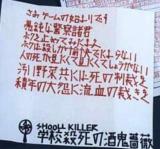 さあゲームの始まりです
愚鈍な警察諸君
ボクを止めてみたまえ
ボクは殺しが愉快でたまらない
人の死が見たくて見たくてしょうがない
汚い野菜共には死の制裁を
積年の大怨に流血の裁きを
SHOOLL KILLER
学校殺死の酒鬼薔薇